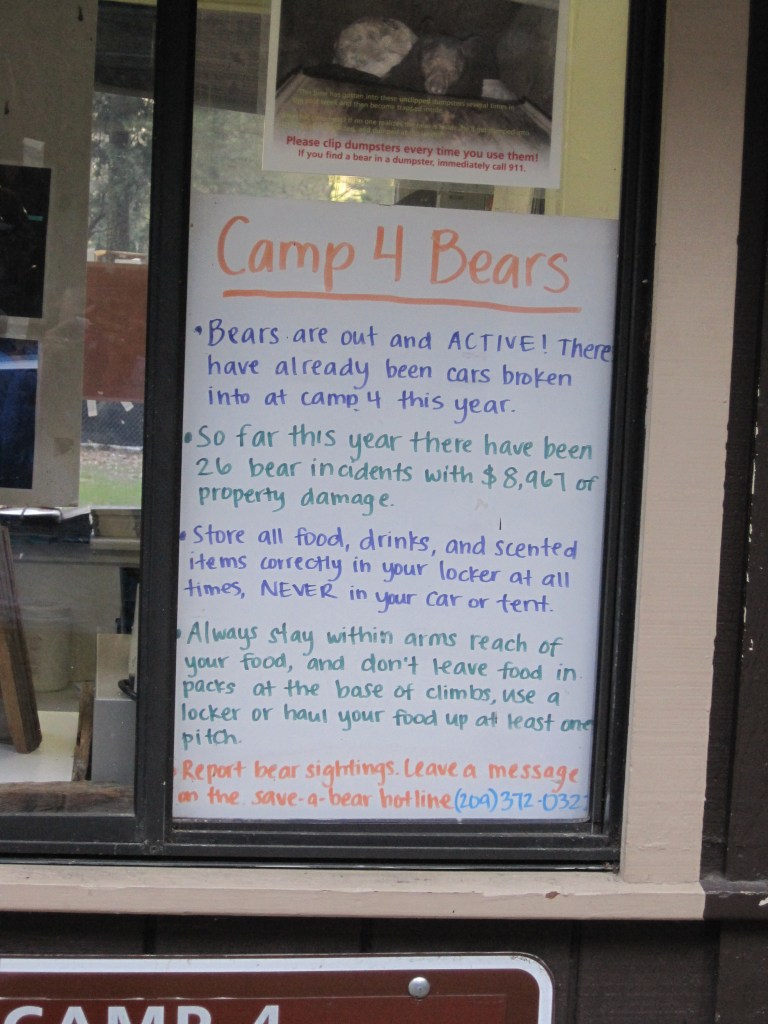 Please clip dumpsters every time you use them!
If you find a bear in a dumpster, immediately call 911.
Camp 4 Bears
• Bears are out and ACTIVE! There
have already been cars broken
into at camp 4 this year.
• So far this year there have been
26 bear incidents with $8,967 of
property damage.
• Store all food, drinks, and scented
items correctly in your locker at all
times, NEVER in your car or tent.
• Always stay within arms reach of
your food, and don't leave food in
packs at the base of climbs, use a
locker or haul your food up at least one
pitch.
• Report bear sightings. Leave a message
on the save-a-bear hotline (209) 372-032
CAMP 4